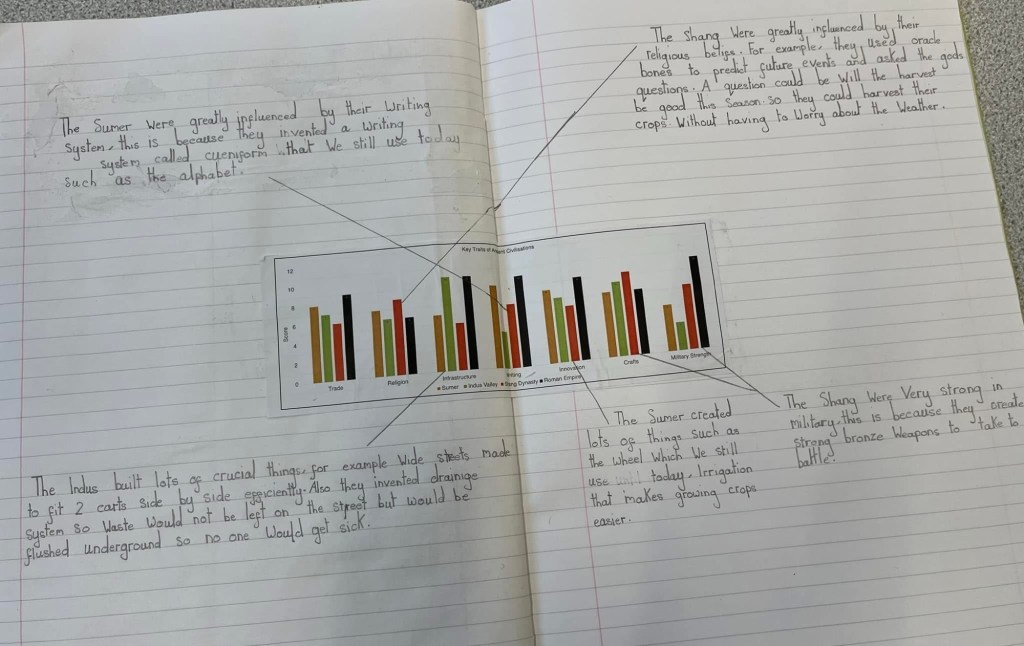 The Sumer were greatly influenced by their writing
system, this is because they invented a writing
system called cueniform that we still use today
such as the alphabet.
The Shang were greatly influenced by their
religious belifs. For example, they used oracle
bones to predict future events and asked the gods
questions. A question could be will the harvest
be good this season. So they could harvest their
crops. Without having to worry about the weather.
Key Traits of Ancient Civilisations
Score
12
10
8
6
4
2
0
Trade
Religion
Infrastructure
Writing
Innovation
Crafts
Military Strength
Sumer Indus Valley Shang Dynasty Roman Empire
The Indus built lots of crucial things, for example wide streets made
to fit 2 carts side by side efficiently. Also they invented drainige
system so waste would not be left on the street but would be
flushed underground so no one would get sick.
The Sumer created
lots of things such as
the wheel which we still
use today, Irrigation
that makes growing crops
easier.
The Shang were very strong in
military, this is because they create
strong bronze weapons to take to
battle.